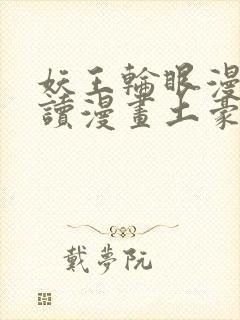 妖王輪眼漫
讀漫畫土豪
戴夢阮